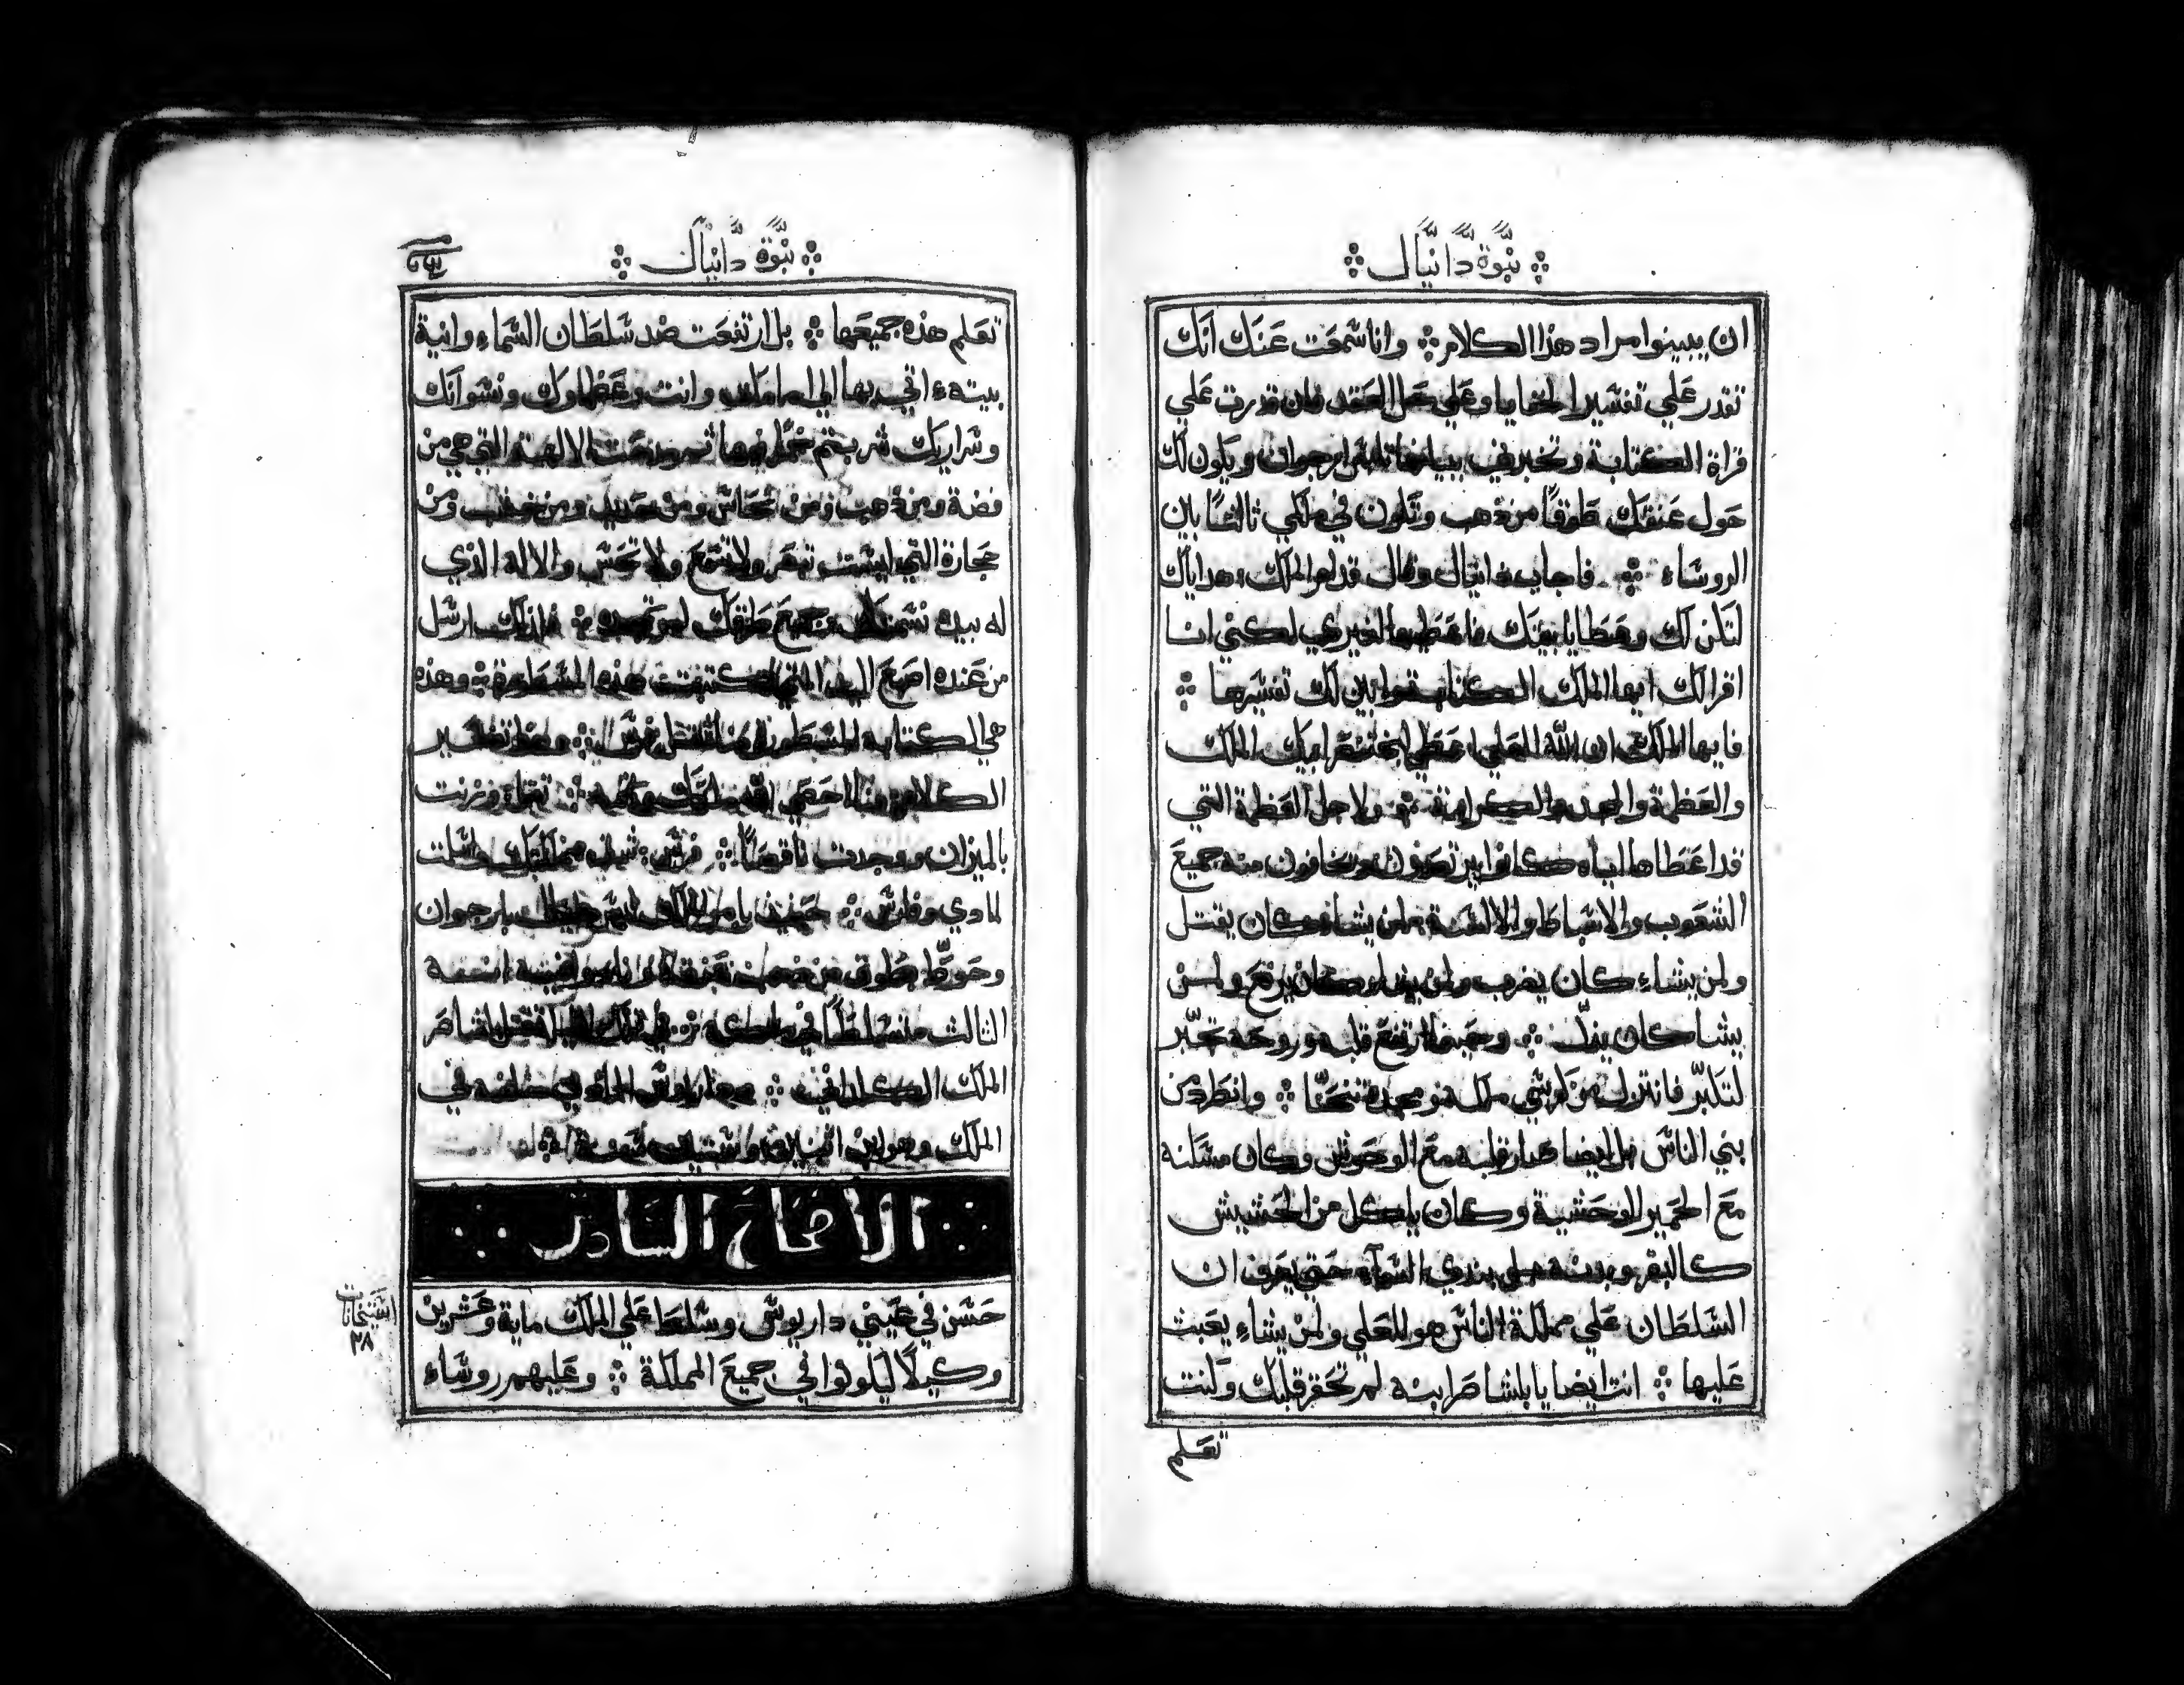 نبوة دانيال
ان يبينوا مراد هذا الكلام وانا سمعت عنك انك
تقدر علي تفسير الخفايا وعلي حل العقد فان قدرت علي
قراة الكتابة وتخبرني ببيانها تلبس ارجوان ويكون لك
حول عنقك طوقا من ذهب وتكون في ملكي ثالثا بين
الروساء فاجاب دانيال وقال قدام الملك هداياك
لتكن لك وعطايا بيتك فاعطيها لغيري لكني انا
اقرا لك ايها الملك الكتابة وابين لك تفسيرها
فايها الملك ان الله العلي اعطي لبختنصر ابيك الملك
والعظمة والمجد والكرامة ولاجل العظمة التي
قد اعطاها اياه كانوا يرتعدون ويخافون منه جميع
الشعوب والاسباط والالسنة من يشاء كان يقتل
ولمن يشاء كان يضرب ولمن يشاء كان يرفع ولمن
يشا كان يذل وحينما ارتفع قلبه وروحه تجبر
لتكبر فانتزل من كرسي ملكه ومجده تنحا وانطرد من
بني الناس بل ايضا صار قلبه مع الوحوش وكان مسكنه
مع الحمير الوحشية وكان ياكل من الحشيش
كالبقر وبدنه بندي السماء حتي يعرف ان
السلطان علي مملكة الناس هو للعلي ولمن يشاء يعبث
عليها انت ايضا يا بلشاصر ابنه لم تحقر قلبك وكنت
تعلم
نبوة دانيال
تعلم هذه جميعها بل ارتفعت ضد سلطان السماء وانية
بيته اتي بها الي امامك وانت وعظماوك ونسوانك
وسراريك شربتم خمرا فيها ثم مدحت الالهة التي هي من
فضة ومن ذهب ومن نحاس ومن حديد ومن خشب ومن
حجارة التي ليست تبصر ولا تسمع ولا تحس والاله الذي
له بيده نسمتك وجميع طرقك لم تمجده فلذلك ارسل
من عنده اصبع اليد التي كتبت هذه المسطورة وهذه
هي الكتابة المسطورة منا ثقل فرس وهذا تفسير
الكلام منا احصي الله ملكك وتممه ثقل وزنت
بالميزان ووجدت ناقصا فرس قسمت مملكتك واعطيت
لمادي وفارس حينيذ بامر الملك لبس دانيال بارجوان
وحوط بطوق من ذهب عنقه ونادوا فيه انه
الثالث متسلطا في ملكه في تلك الليلة قتل بلشاصر
الملك الكلداني وداريوس المادي خلفه في
الملك وهو ابن اثنين وستين سنة
الاصحاح السادس
حسن في عيني داريوس وسلط علي الملك ماية وعشرين
وكيلا ليكونوا في جميع المملكة وعليهم روساء
٢٨